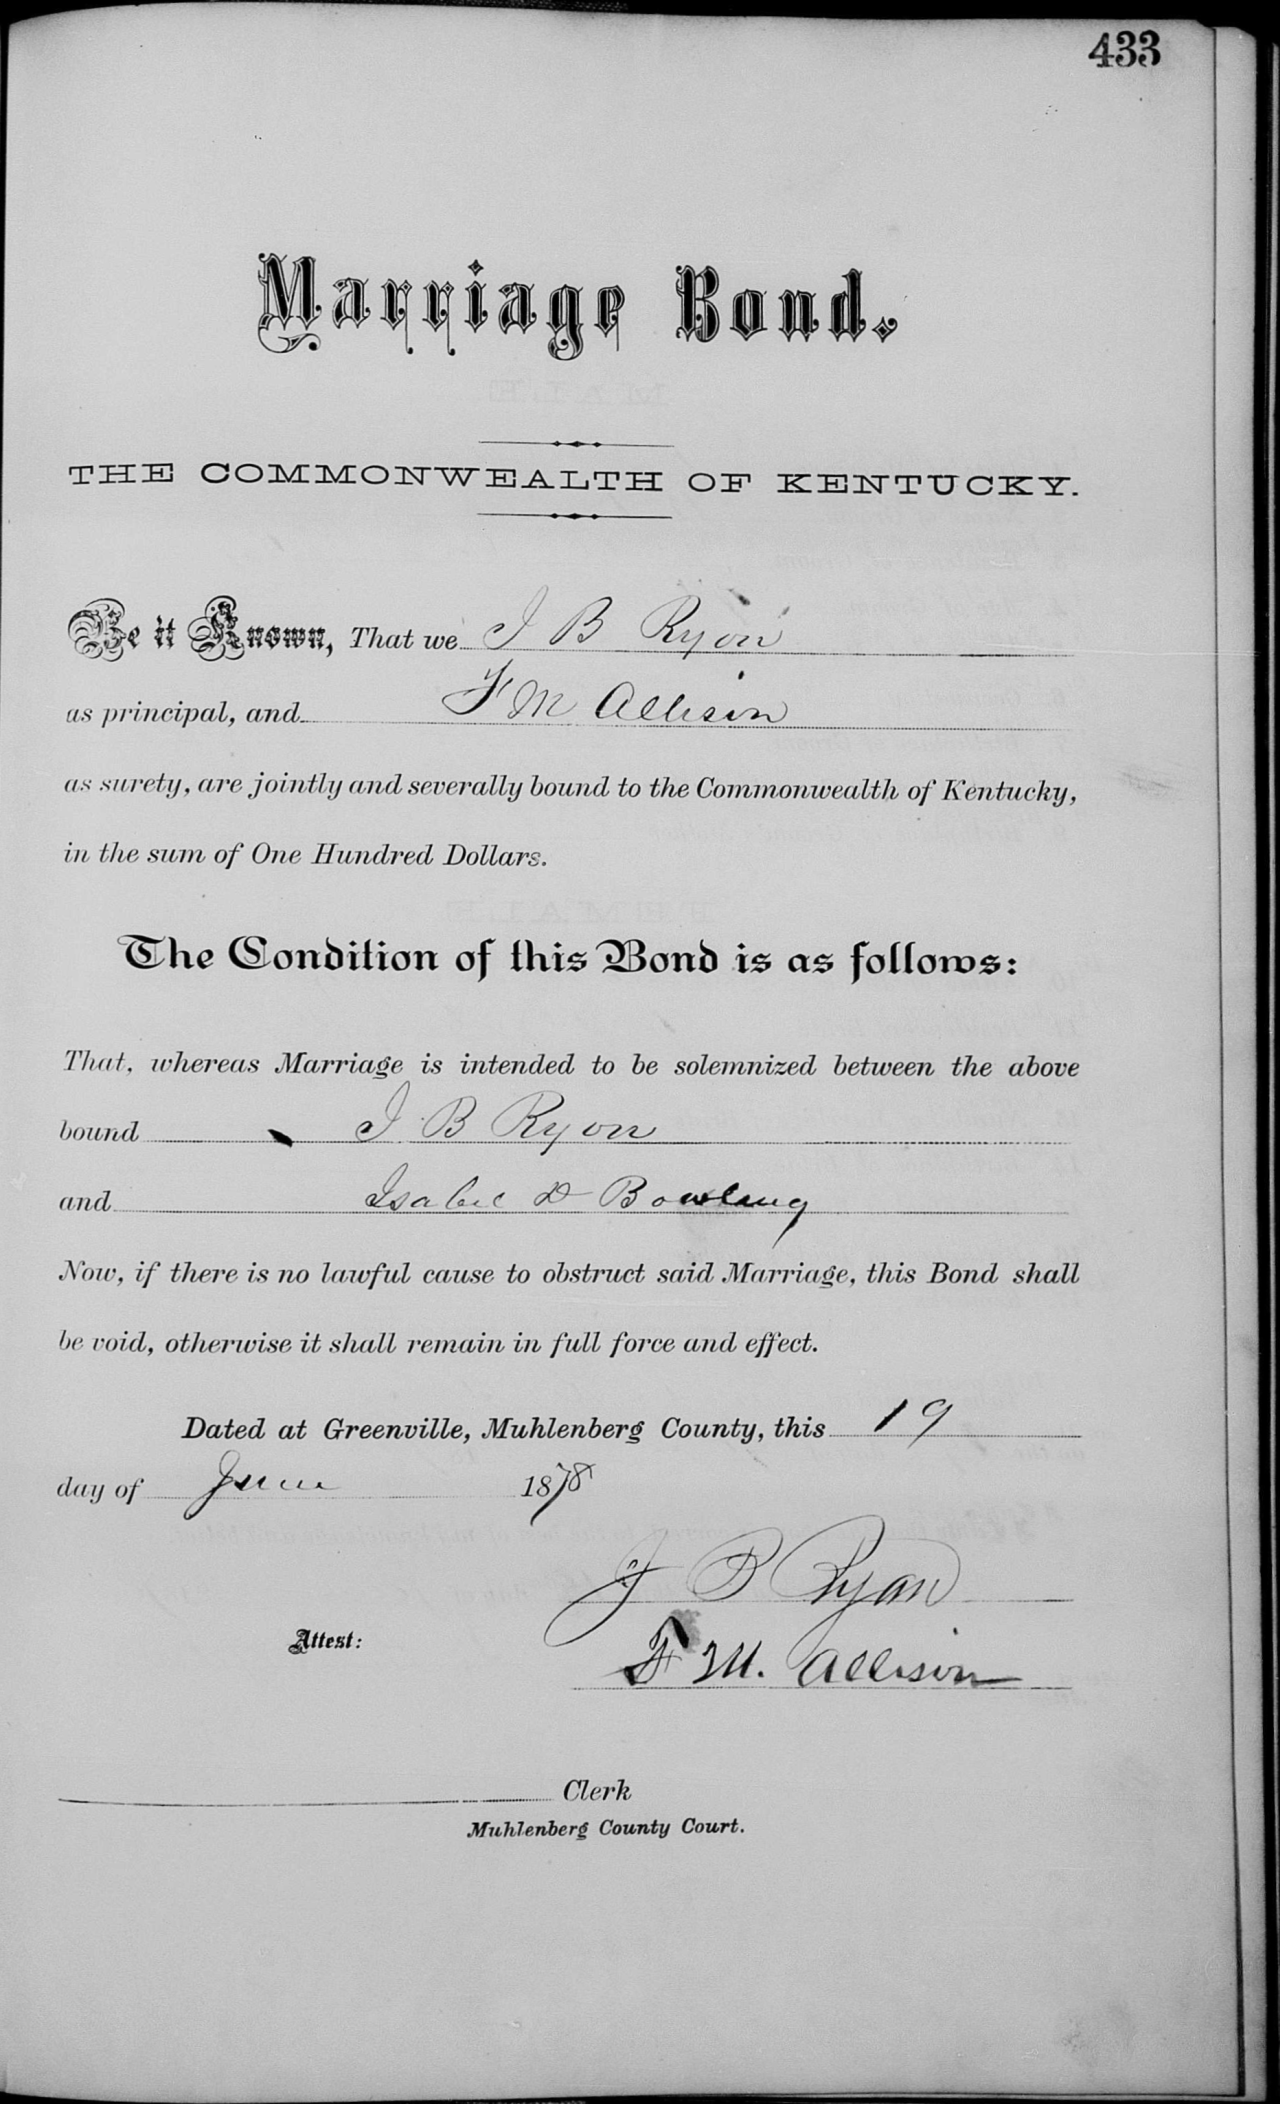 433
Marriage Bond.
THE COMMONWEALTH OF KENTUCKY.
Be it Known, That we J B Ryon
as principal, and F M Allison
as surety, are jointly and severally bound to the Commonwealth of Kentucky,
in the sum of One Hundred Dollars.
The Condition of this Bond is as follows:
That, whereas Marriage is intended to be solemnized between the above
bound J B Ryon
and Isabel D Bowling
Now, if there is no lawful cause to obstruct said Marriage, this Bond shall
be void, otherwise it shall remain in full force and effect.
Dated at Greenville, Muhlenberg County, this 19
day of June 1878
J B Ryan
Attest:
F M. Allison
Clerk
Muhlenberg County Court.